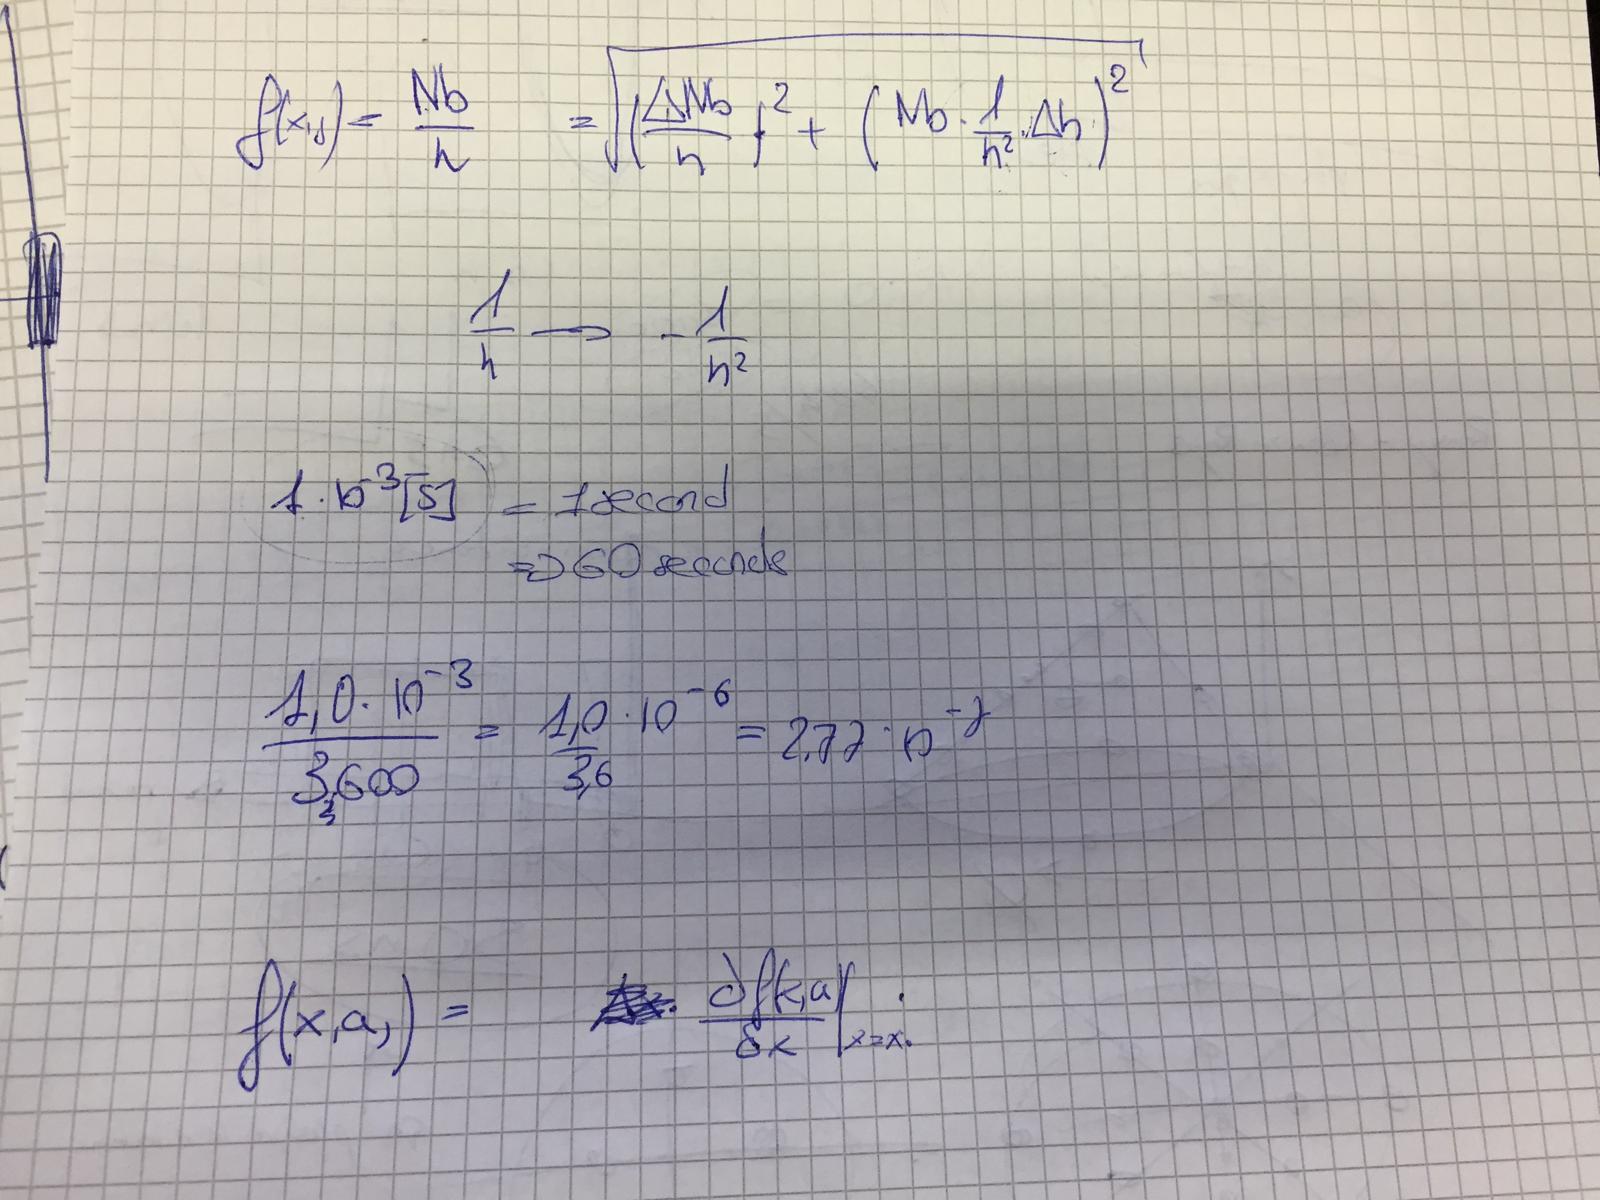 f(x,y) = Nb/h = √((ΔNb/h)² + (Nb · 1/h² · Δh)²)
1/h → - 1/h²
1 · 10⁻³ [s] = 1 second
⇒ 60 seconds
1,0 · 10⁻³ / 3,600 = 1,0/3,6 · 10⁻⁶ = 2,77 · 10⁻⁷
f(x,a,) = ∂f(x,a)/δx |x=x.